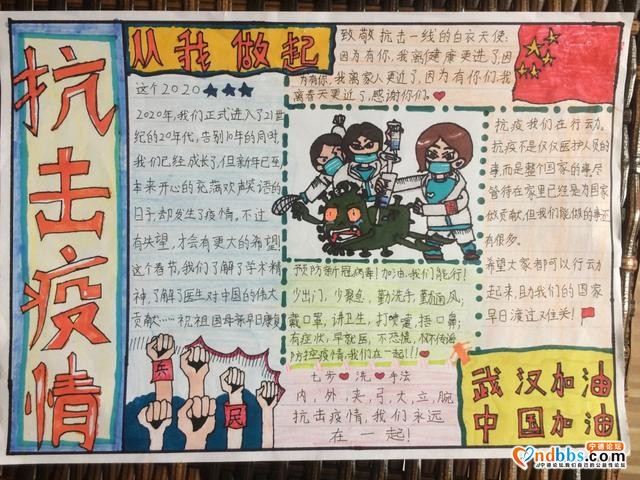 抗击疫情
从我做起
致敬抗击一线的白衣天使:
因为有你,我离健康更进了,因
为有你,我离家人更近了,因为有你们,我
离春天更近了,感谢你们。
这个2020
2020年,我们正式进入了21世
纪的20年代,告别10年的同时,
我们已经成长了,但新年已至,
本来开心的充满欢声笑语的
日子却发生了疫情,不过
有失望,才会有更大的希望!
这个春节,我们了解了学术精
神,了解了医生对中国的伟大
贡献……祝祖国母亲早日康复
兵
民
预防新冠病毒!加油,我们能行!
少出门,少聚点,勤洗手,勤通风;
戴口罩,讲卫生,打喷嚏,捂口鼻;
有症状,早就医,不恐慌,
防控疫情,我们在一起!!!
七步洗手法
内,外,夹,弓,大,立,腕
抗击疫情,我们永远
在一起!
抗疫我们在行动。
抗疫不是仅仅医护人员的
事,而是整个国家的事,尽
管待在家里已经是为国家
做贡献,但我们能做的事还
有很多。
希望大家都可以行动
起来,助我们的国家
早日渡过难关!
武汉加油
中国加油
宁德论坛
ndbbs.com
宁德论坛,我们自己的公益性论坛